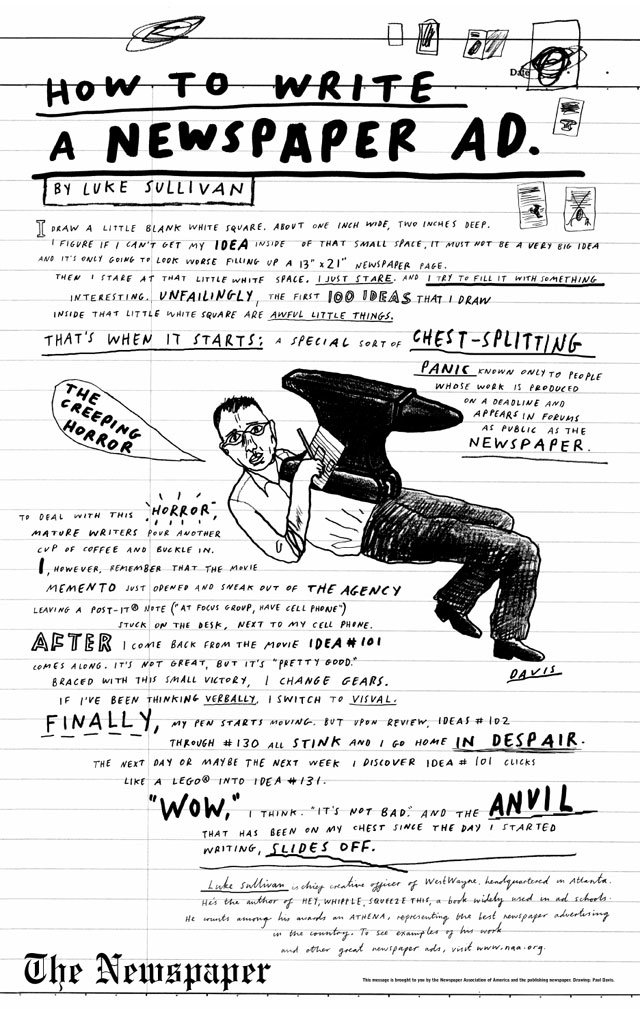 Date
HOW TO WRITE
A NEWSPAPER AD.
BY LUKE SULLIVAN
I DRAW A LITTLE BLANK WHITE SQUARE. ABOUT ONE INCH WIDE, TWO INCHES DEEP.
I FIGURE IF I CAN'T GET MY IDEA INSIDE OF THAT SMALL SPACE, IT MUST NOT BE A VERY BIG IDEA
AND IT'S ONLY GOING TO LOOK WORSE FILLING UP A 13" x 21" NEWSPAPER PAGE.
THEN I STARE AT THAT LITTLE WHITE SPACE. I JUST STARE. AND I TRY TO FILL IT WITH SOMETHING
INTERESTING. UNFAILINGLY, THE FIRST 100 IDEAS THAT I DRAW
INSIDE THAT LITTLE WHITE SQUARE ARE AWFUL LITTLE THINGS.
THAT'S WHEN IT STARTS: A SPECIAL SORT OF CHEST-SPLITTING
PANIC KNOWN ONLY TO PEOPLE
WHOSE WORK IS PRODUCED
ON A DEADLINE AND
APPEARS IN FORUMS
AS PUBLIC AS THE
NEWSPAPER.
THE
CREEPING
HORROR
TO DEAL WITH THIS HORROR,
MATURE WRITERS POUR ANOTHER
CUP OF COFFEE AND BUCKLE IN.
I, HOWEVER, REMEMBER THAT THE MOVIE
MEMENTO JUST OPENED AND SNEAK OUT OF THE AGENCY
LEAVING A POST-IT® NOTE ("AT FOCUS GROUP, HAVE CELL PHONE")
STUCK ON THE DESK, NEXT TO MY CELL PHONE.
AFTER I COME BACK FROM THE MOVIE IDEA #101
COMES ALONG. IT'S NOT GREAT, BUT IT'S "PRETTY GOOD."
BRACED WITH THIS SMALL VICTORY, I CHANGE GEARS.
IF I'VE BEEN THINKING VERBALLY, I SWITCH TO VISUAL.
DAVIS
FINALLY, MY PEN STARTS MOVING. BUT UPON REVIEW, IDEAS #102
THROUGH #130 ALL STINK AND I GO HOME IN DESPAIR.
THE NEXT DAY OR MAYBE THE NEXT WEEK I DISCOVER IDEA #101 CLICKS
LIKE A LEGO® INTO IDEA #131.
"WOW," I THINK. "IT'S NOT BAD." AND THE ANVIL
THAT HAS BEEN ON MY CHEST SINCE THE DAY I STARTED
WRITING, SLIDES OFF.
Luke Sullivan is chief creative officer of WestWayne, headquartered in Atlanta.
He's the author of HEY, WHIPPLE, SQUEEZE THIS, a book widely used in ad schools.
He counts among his awards an ATHENA, representing the best newspaper advertising
in the country. To see examples of his work
and other great newspaper ads, visit www.naa.org.
The Newspaper
This message is brought to you by the Newspaper Association of America and the publishing newspaper. Drawing: Paul Davis.